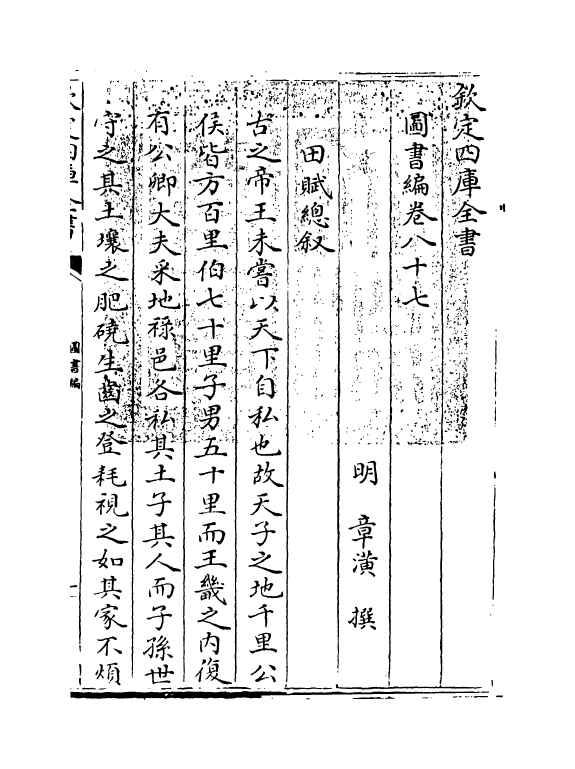 欽定四庫全書
圖書編卷八十七
明 章潢 撰
田賦總敘
古之帝王未嘗以天下自私也故天子之地千里公
侯皆方百里伯七十里子男五十里而王畿之內復
有公卿大夫采地祿邑各私其土子其人而子孫世
守之其土壤之肥磽生齒之登耗視之如其家不煩
欽定四庫全書
圖書編